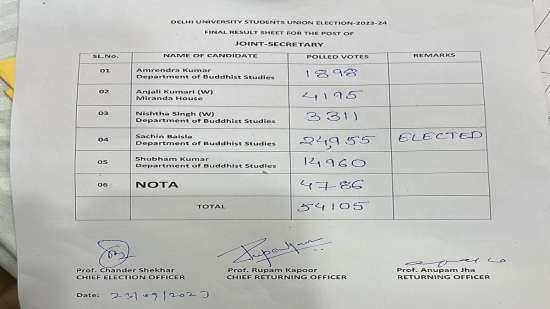 DELHI UNIVERSITY STUDENTS UNION ELECTION-2023-24
FINAL RESULT SHEET FOR THE POST OF
JOINT-SECRETARY
SL.No. NAME OF CANDIDATE POLLED VOTES REMARKS
01 Amrendra Kumar 1898
Department of Buddhist Studies
02 Anjali Kumari (W) 4195
Miranda House
03 Nishtha Singh (W) 3311
Department of Buddhist Studies
04 Sachin Baisla 24,955 ELECTED
Department of Buddhist Studies
05 Shubham Kumar 14960
Department of Buddhist Studies
06 NOTA 4786
TOTAL 54105
Prof. Chander Shekhar Prof. Rupam Kapoor Prof. Anupam Jha
CHIEF ELECTION OFFICER CHIEF RETURNING OFFICER RETURNING OFFICER
Date: 23/09/2023